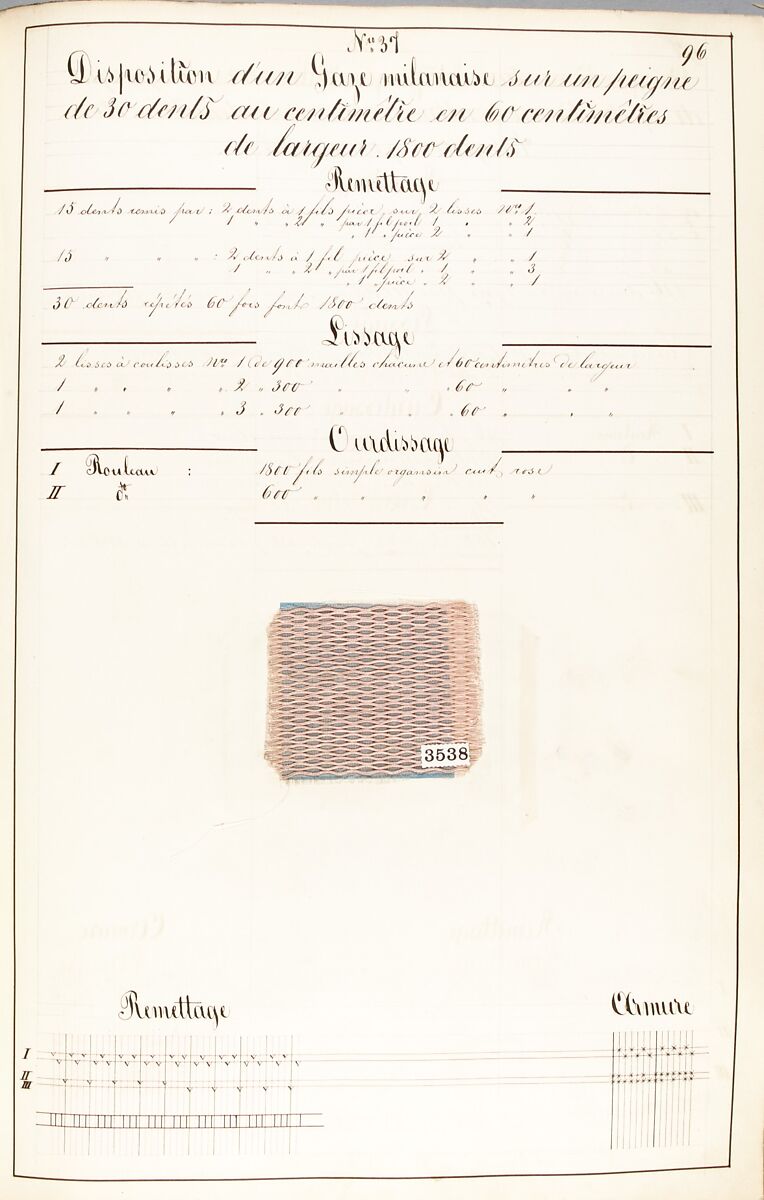 Nro 37
96
Disposition d'un Gaze milanaise sur un peigne
de 30 dents au centimétre en 60 centimétres
de largeur. 1800 dents
Remettage
15 dents remis par : 2 dents à 1 fils pièce, sur 2 lisses Nro 1.
1 " " 2 " par 1 fil poil 1 " " 2
" 1 " pièce 2 " " 1
15 " " " : 2 dents à 1 fil pièce sur 2 " " 1
1 " " 2 " par 1 fil poil " 1 " " 3
" 1 " pièce " 2 " " 1
30 dents répétés 60 fois font 1800 dents
Lissage
2 lisses à coulisses Nro 1 de 900 mailles chacune et 60 centimètres de largeur
1 " " " " 2 " 300 " " " 60 " " "
1 " " " " 3 " 300 " " 60 " " "
Ourdissage
I Rouleau : 1800 fils simple organsin cuit, rose
II dto 600 " " " " "
3538
Remettage
Armure
I
II
III